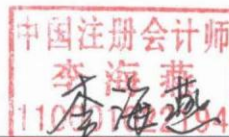 中国注册会计师
李海燕
李海燕